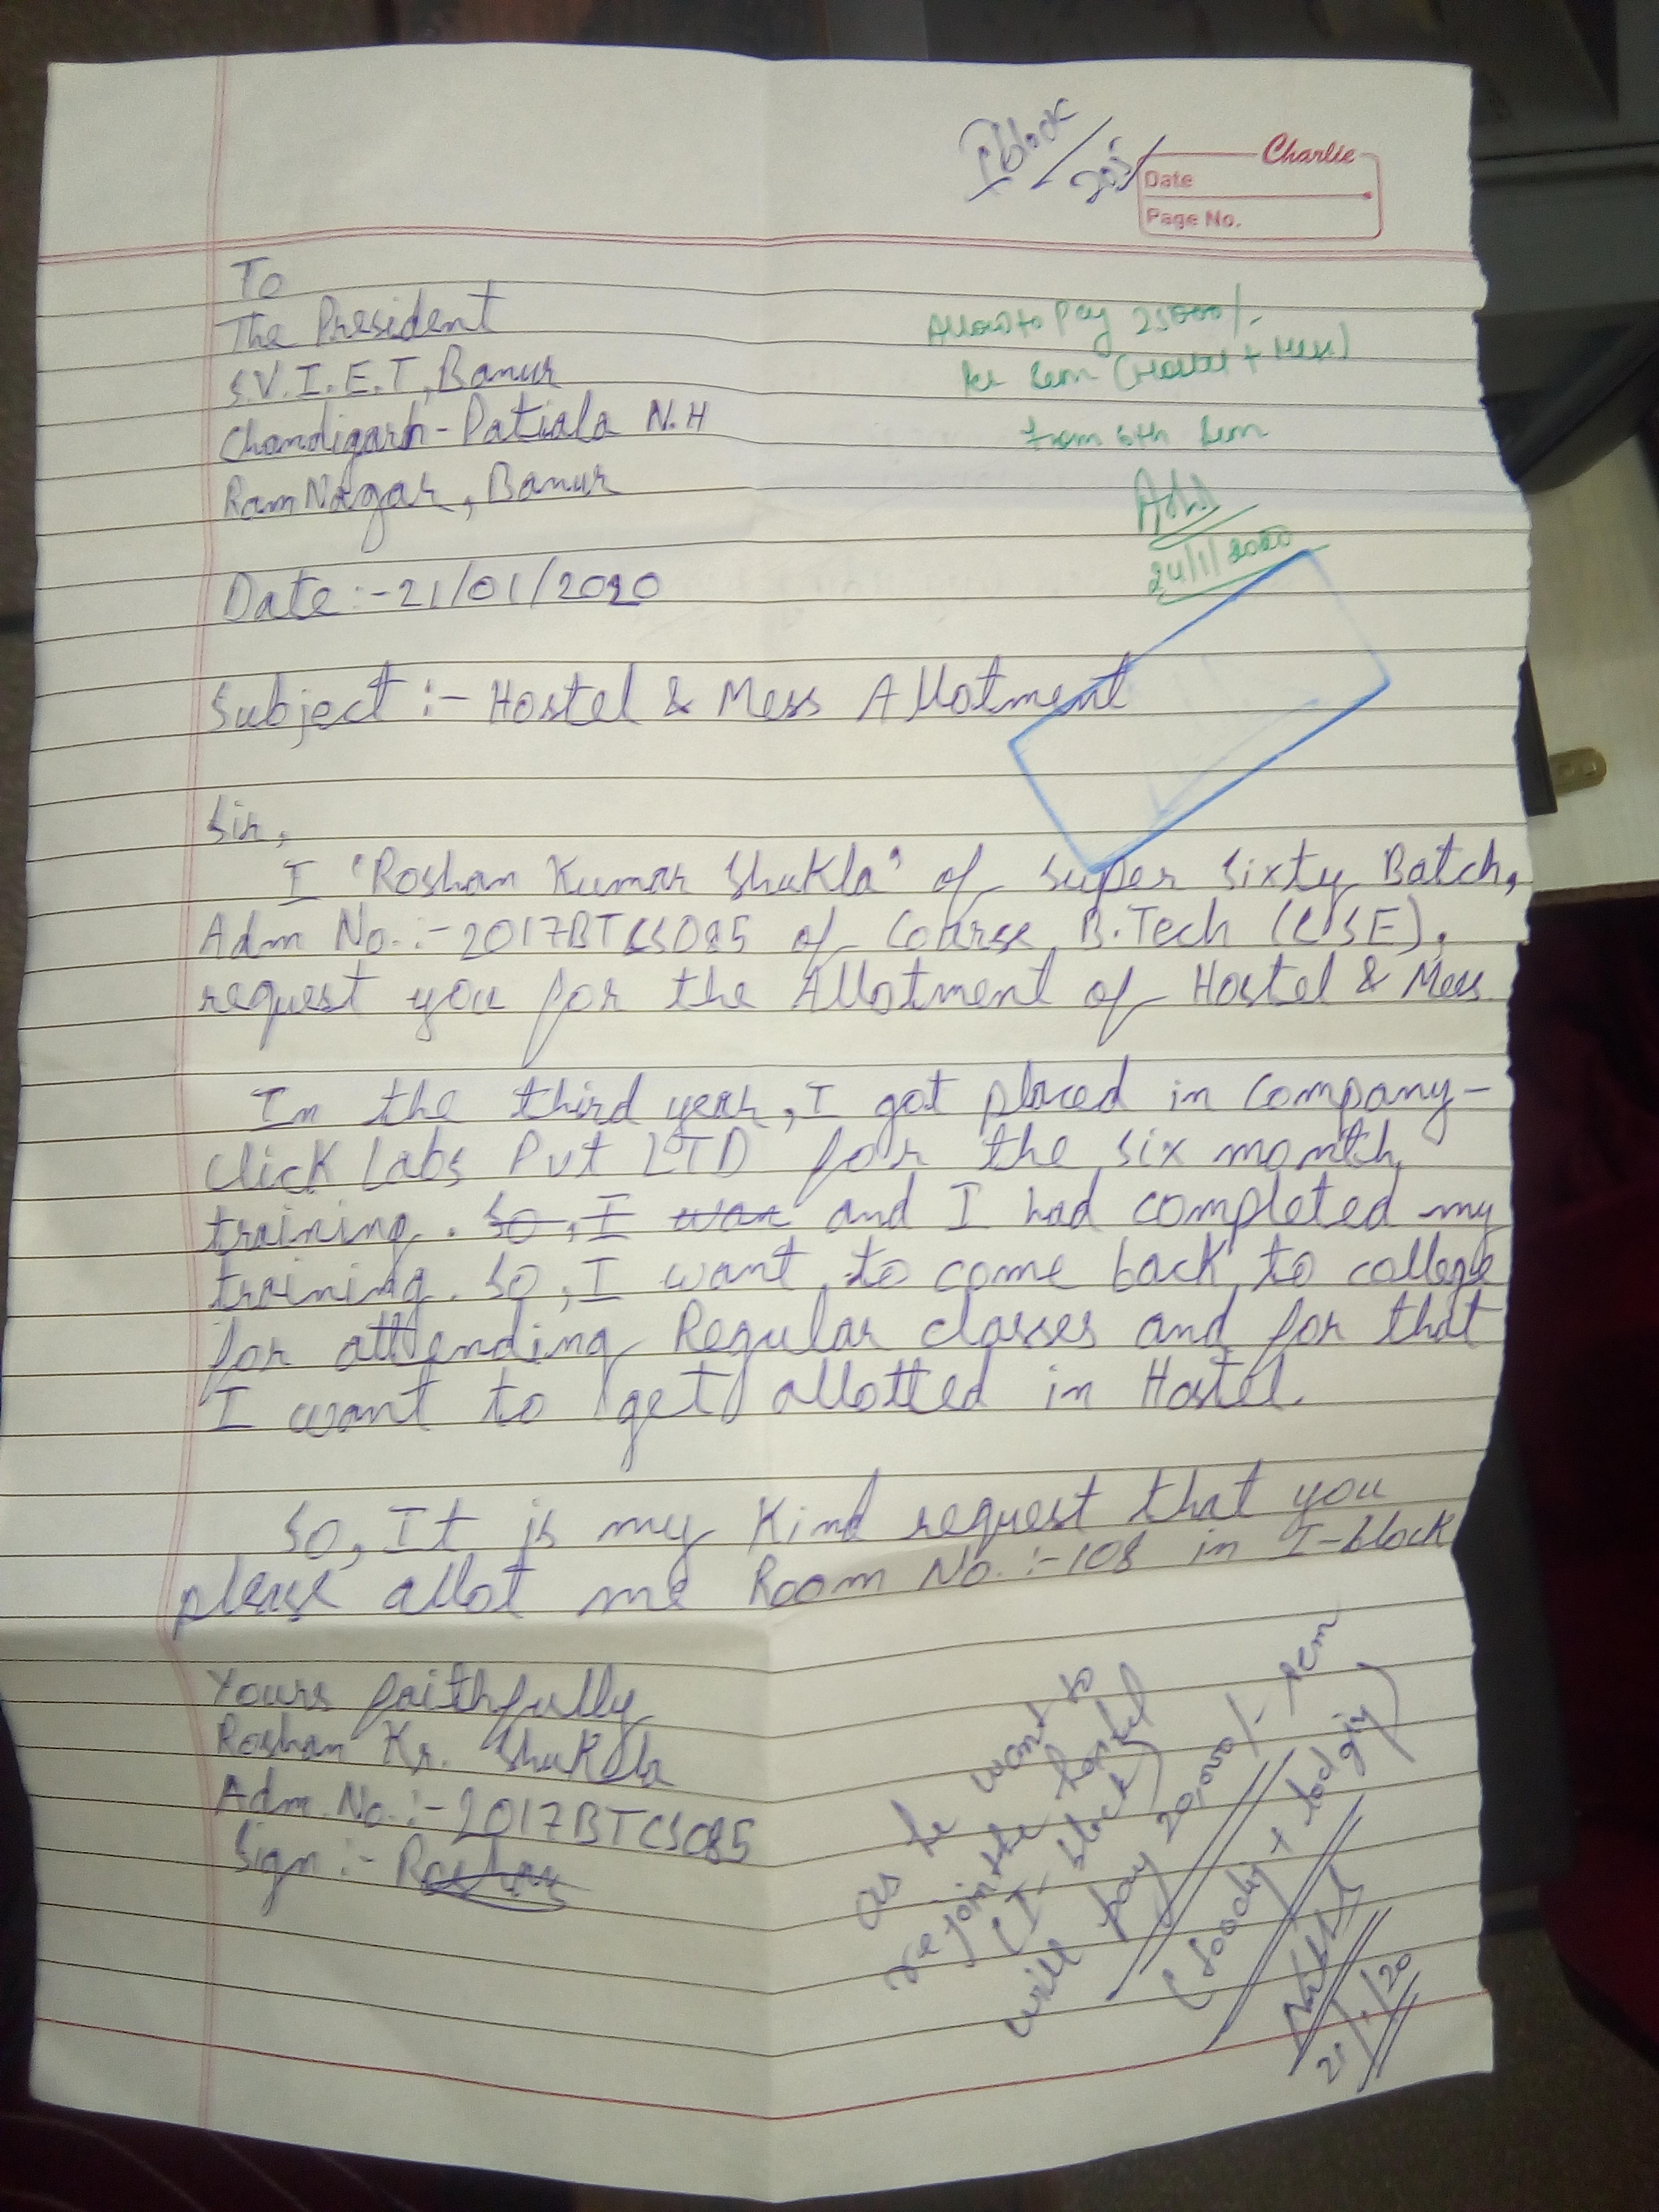 I block / 205
Charlie
Date
Page No.
To
The President
S.V.I.E.T, Banur
Chandigarh-Patiala N.H
Ram Nagar, Banur
Allow to Pay 25000/-
Per Sem (Hostel + Mess)
from 6th Sem
24/1/2020
Date:-21/01/2020
Subject:- Hostel & Mess Allotment
Sir,
I "Roshan Kumar Shukla" of Super Sixty Batch,
Adm No.:-2017BTCS085 of Course B.Tech (CSE),
request you for the Allotment of Hostel & Mess
In the third year, I got placed in Company-
Click Labs Pvt LTD for the six month
training. So, I wan and I had completed my
training. So, I want to come back to college
for attending Regular classes and for that
I want to get allotted in Hostel.
So, It is my Kind request that you
please allot me Room No.:-108 in I-block
Yours faithfully
Roshan Kr. Shukla
Adm. No.:-2017BTCS085
Sign:- Roshan
as he want to
rejoin the hostel
(I-block)
will pay 20,000/- sem
(foody + lodgiy)
21/1/20